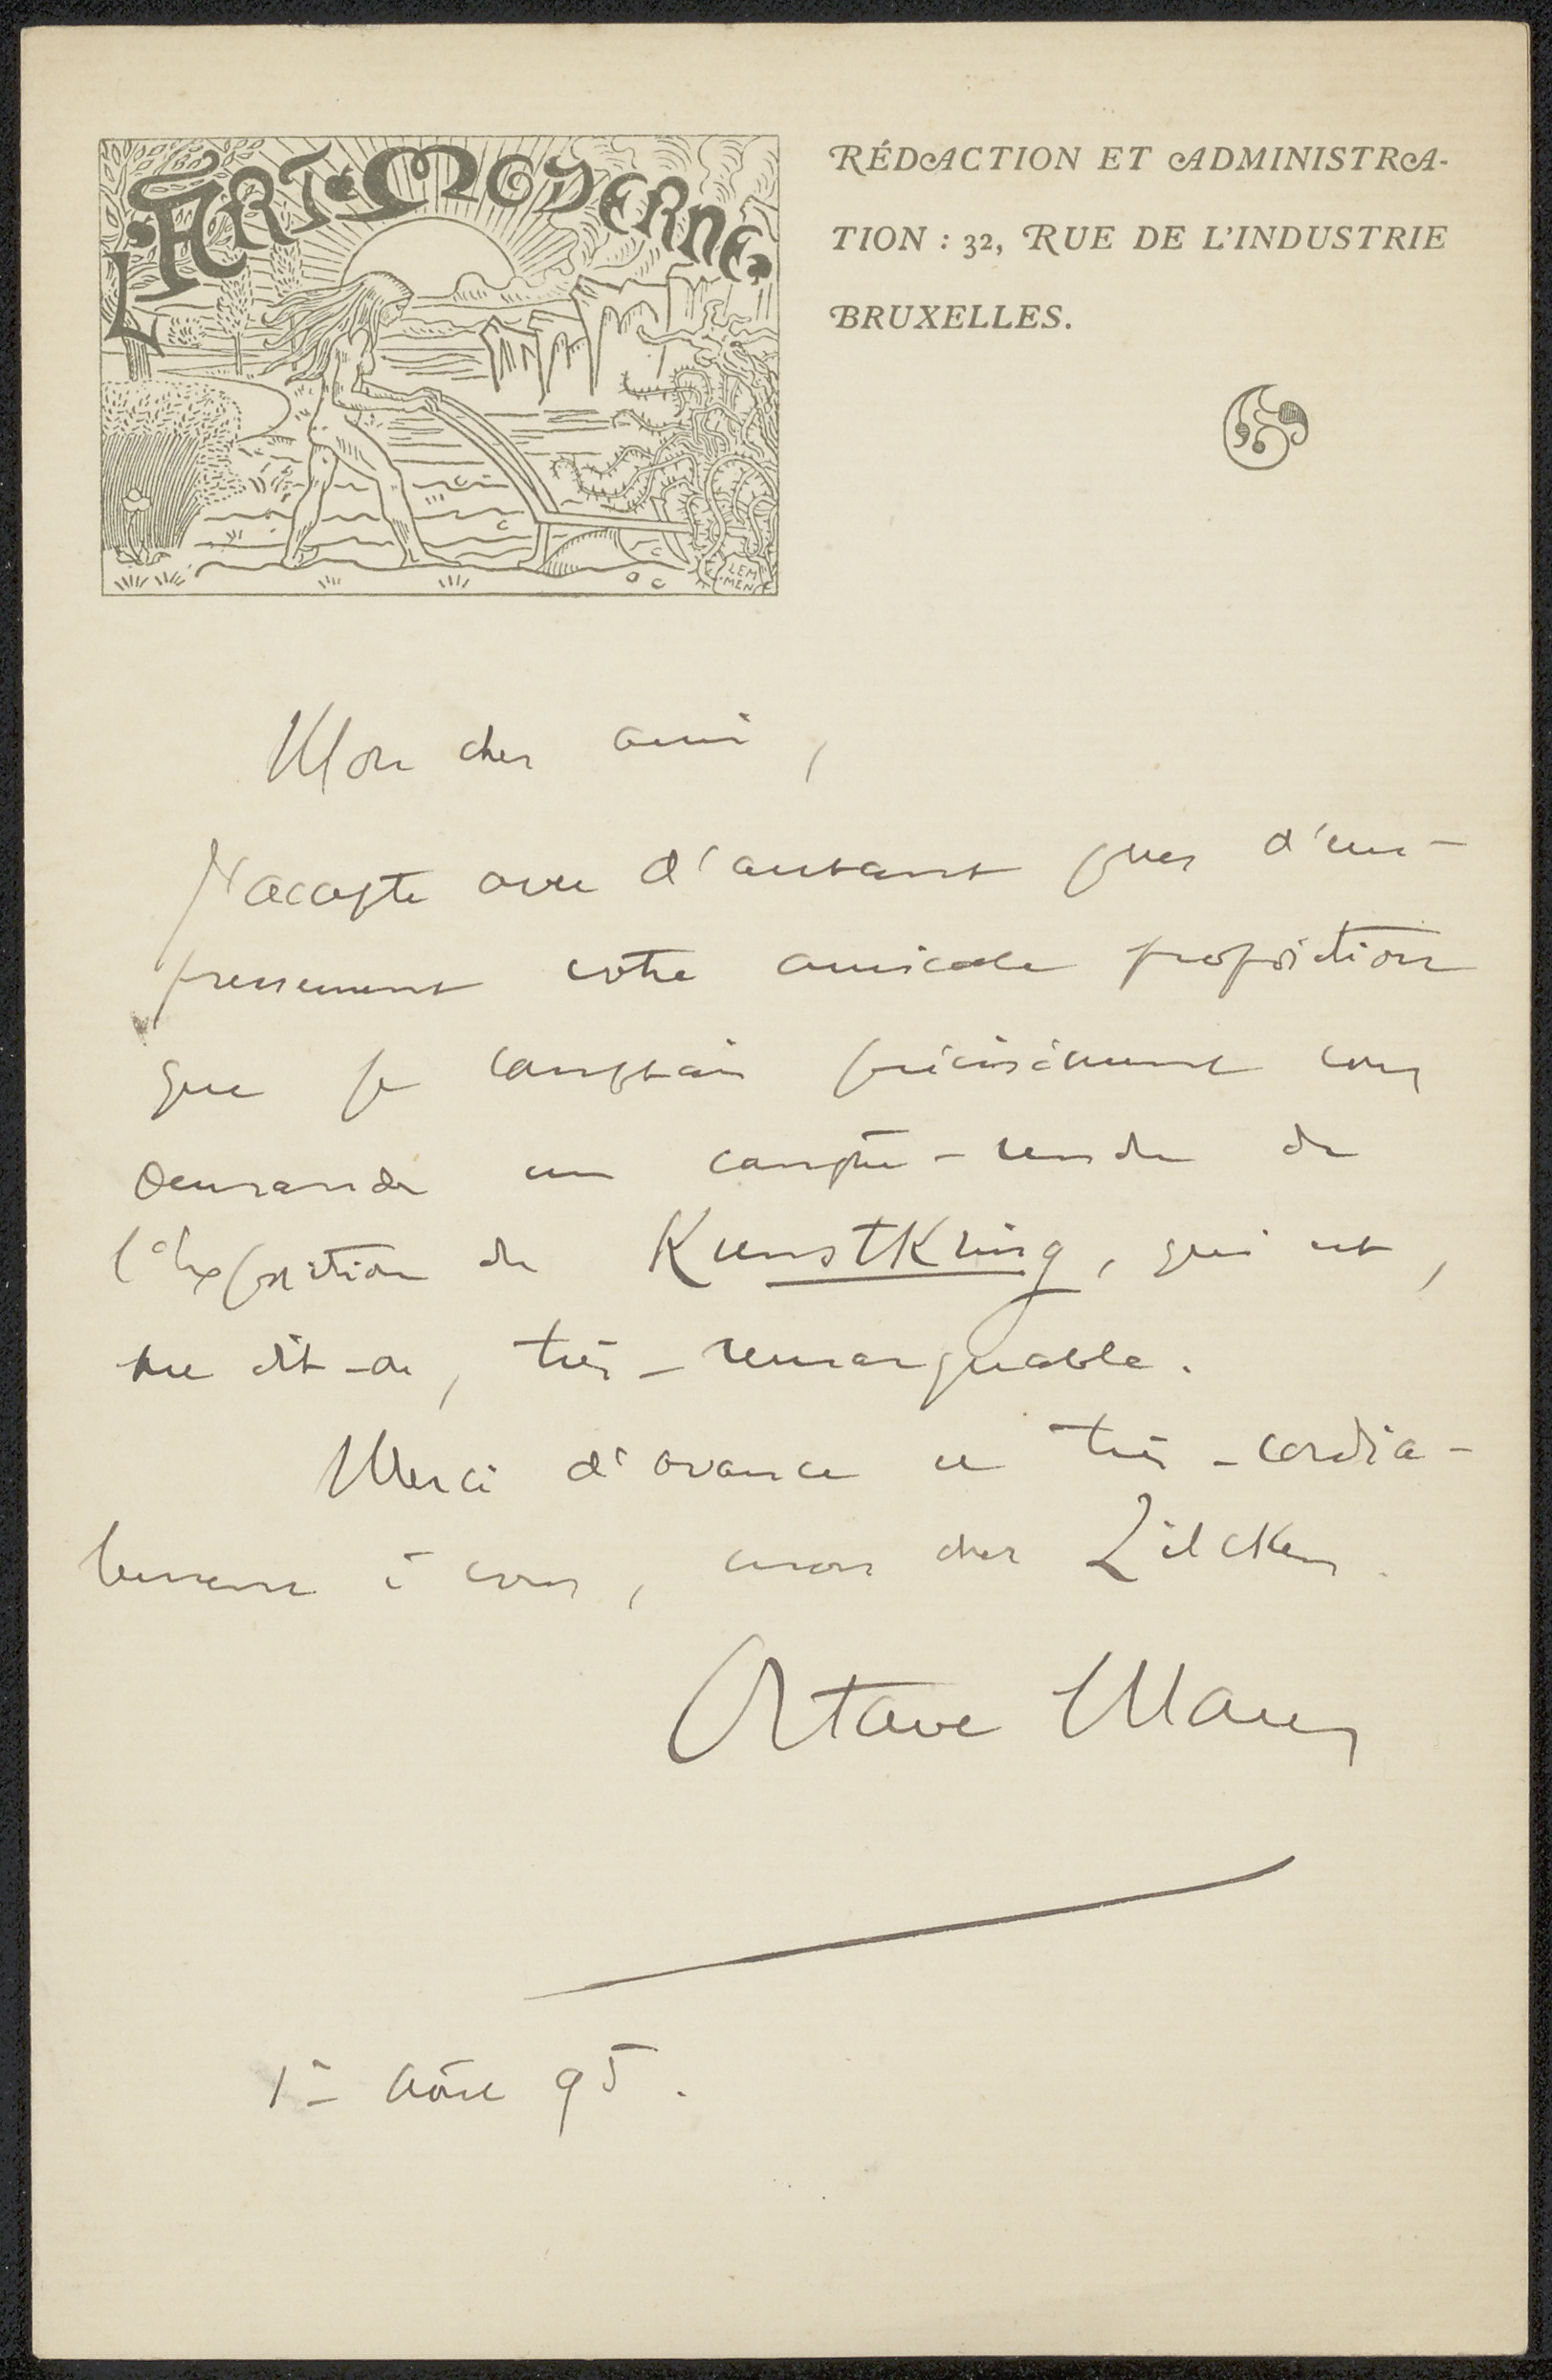 L'ART MODERNE
RÉDACTION ET ADMINISTRA-
TION : 32, RUE DE L'INDUSTRIE
BRUXELLES.
LEM
MEN
Mon cher ami,
J'accepte avec d'autant plus d'em-
pressement votre amicale proposition
que je comptais précisément vous
demander un compte-rendu de
l'Exposition du KunstKring, qui est,
me dit-on, très-remarquable.
Merci d'avance et très-cordia-
lement à vous, mon cher Zilcken.
Octave Maus
1er Août 95.